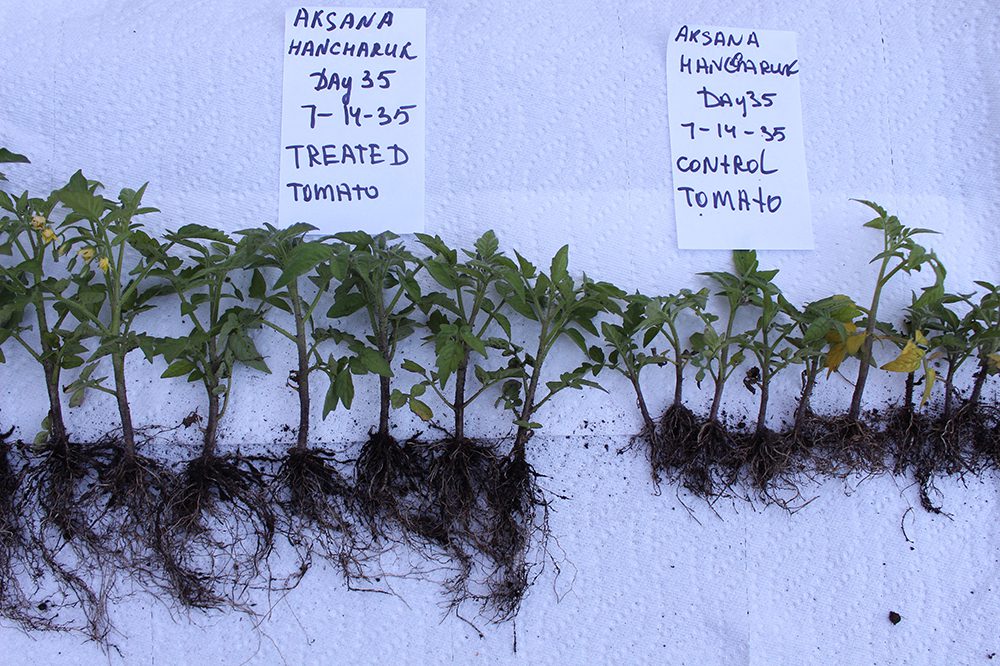 AKSANA
HANCHARUK
DAY 35
7-14-35
TREATED
TOMATO
AKSANA
HANCHARUK
DAY 35
7-14-35
CONTROL
TOMATO